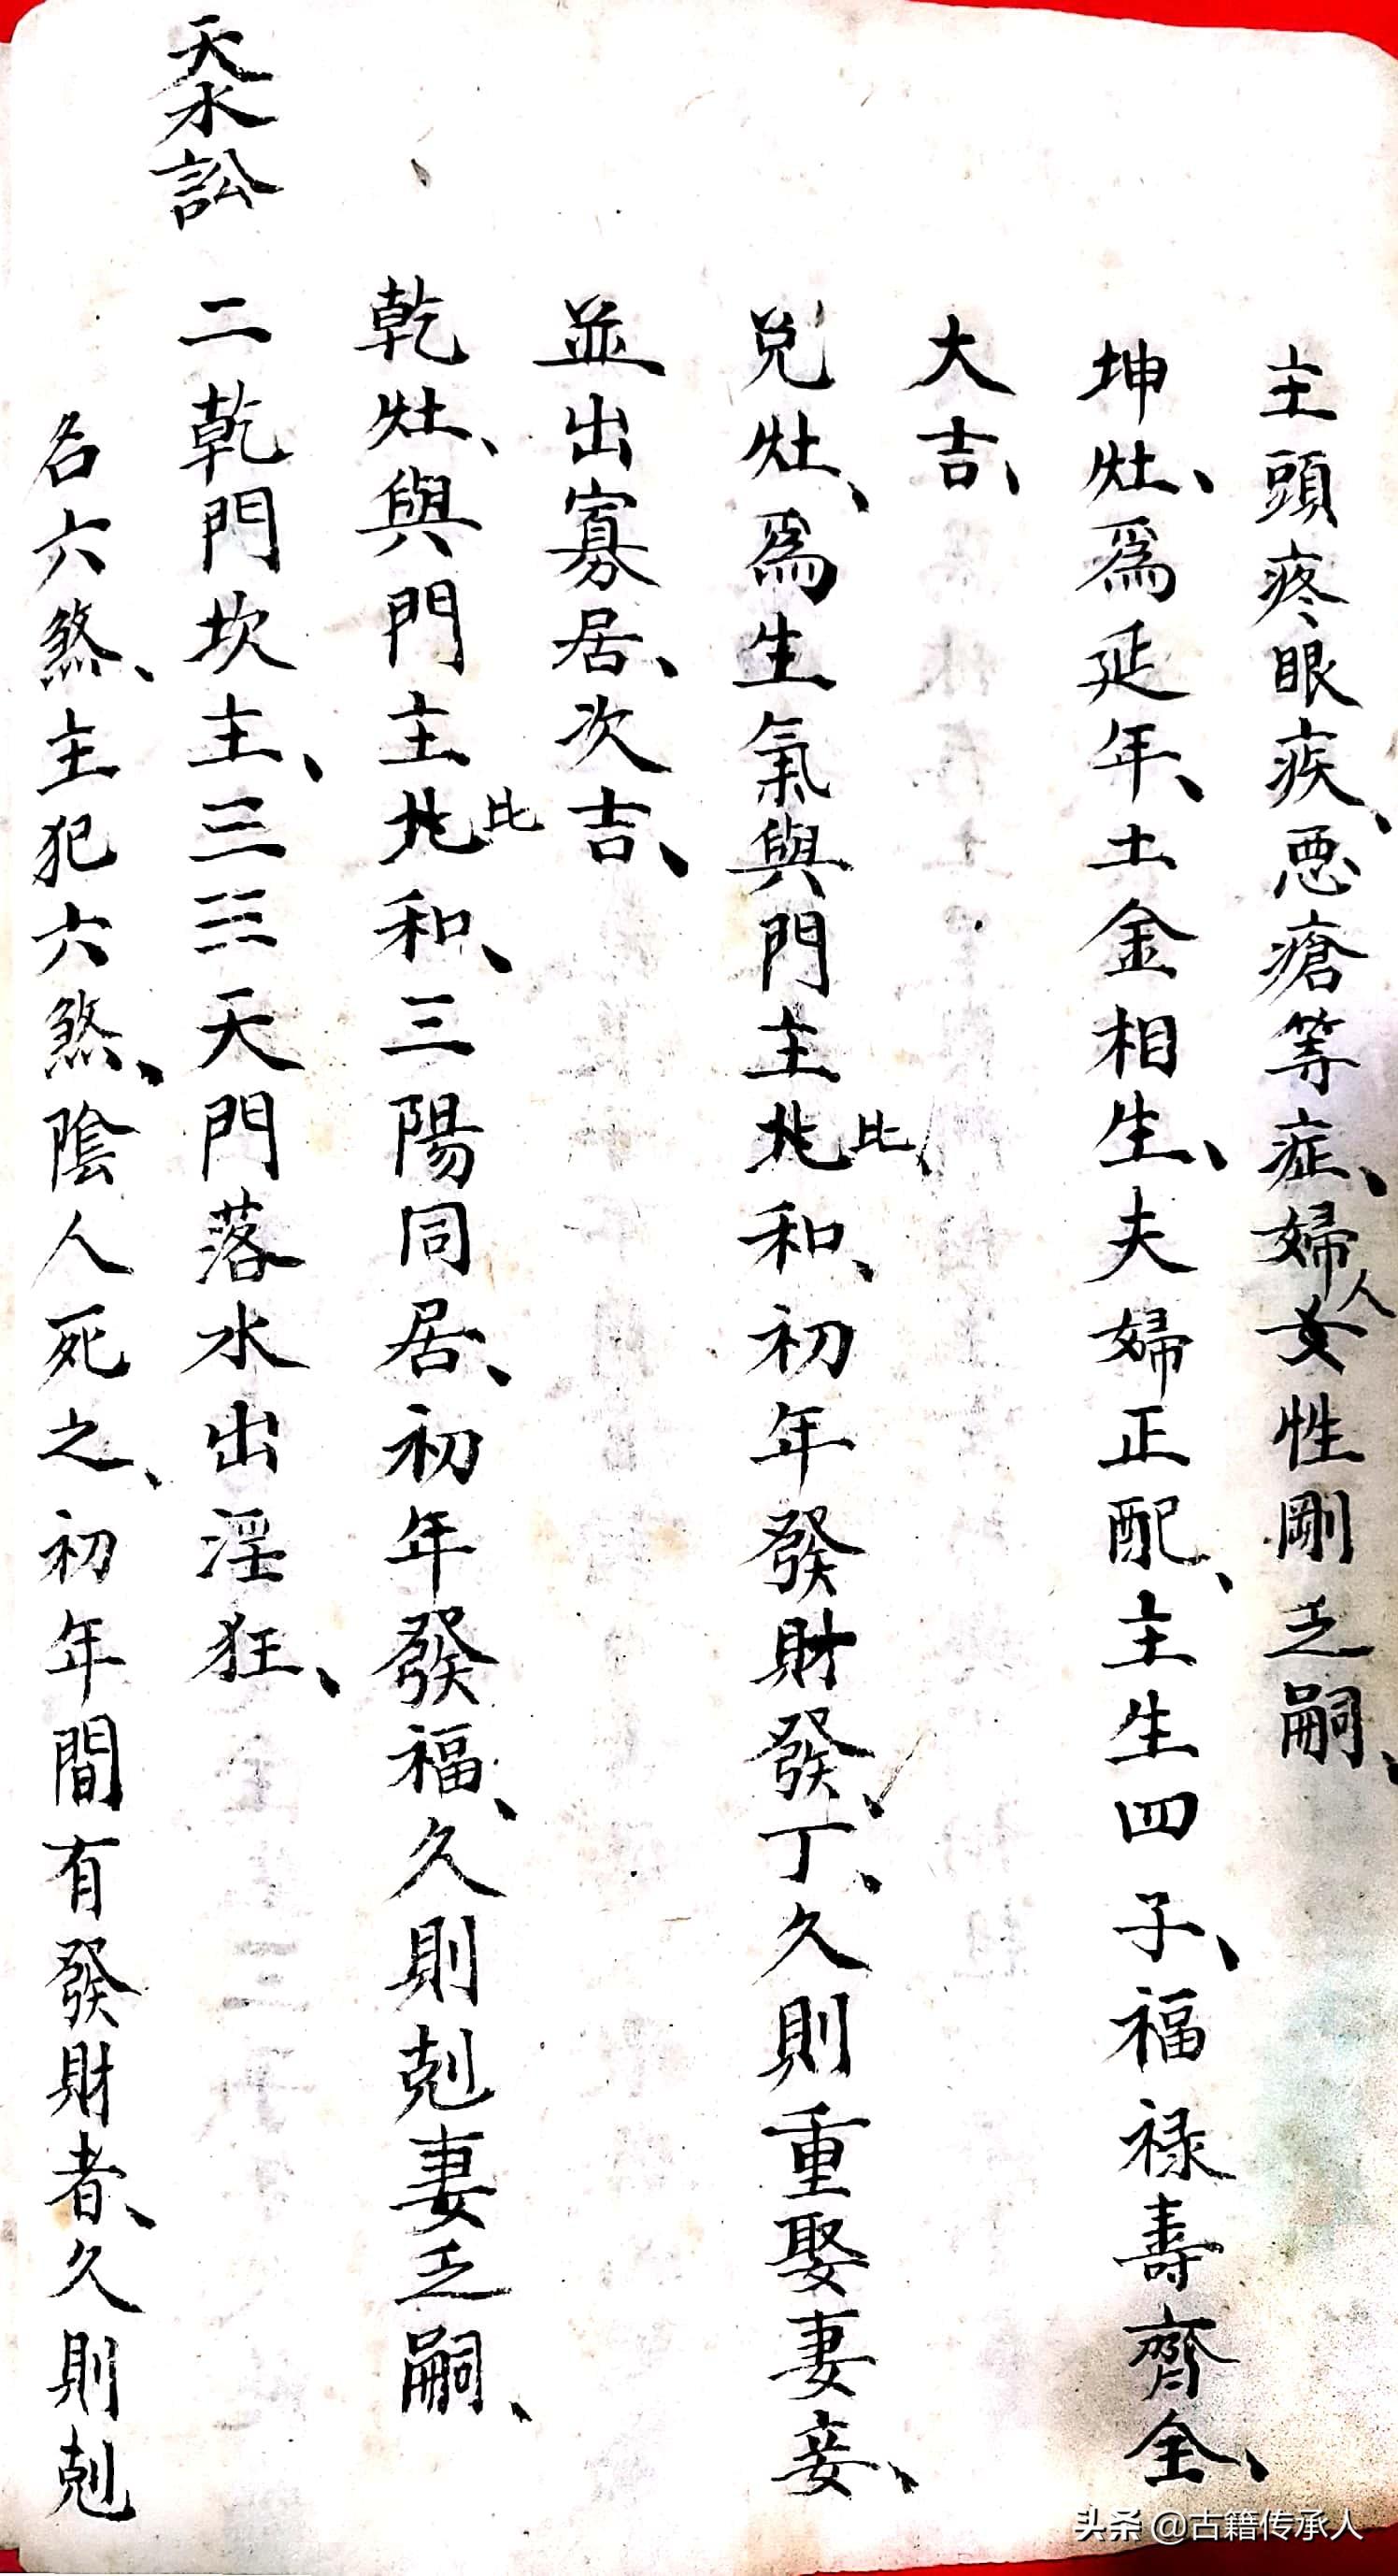 主頭疼眼疾、惡瘡等症、婦人女性剛乏嗣、
坤灶、爲延年、土金相生、夫婦正配、主生四子、福祿壽齊全、
大吉、
兌灶、爲生氣與門主北比和、初年發財發丁、久則重娶妻妾、
並出寡居、次吉、
乾灶、與門主北比和、三陽同居、初年發福、久則剋妻乏嗣、
天水訟
二乾門坎主、☰☵天門落水出淫狂、
名六煞、主犯六煞、陰人死之、初年間有發財者、久則剋
头条@古籍传承人